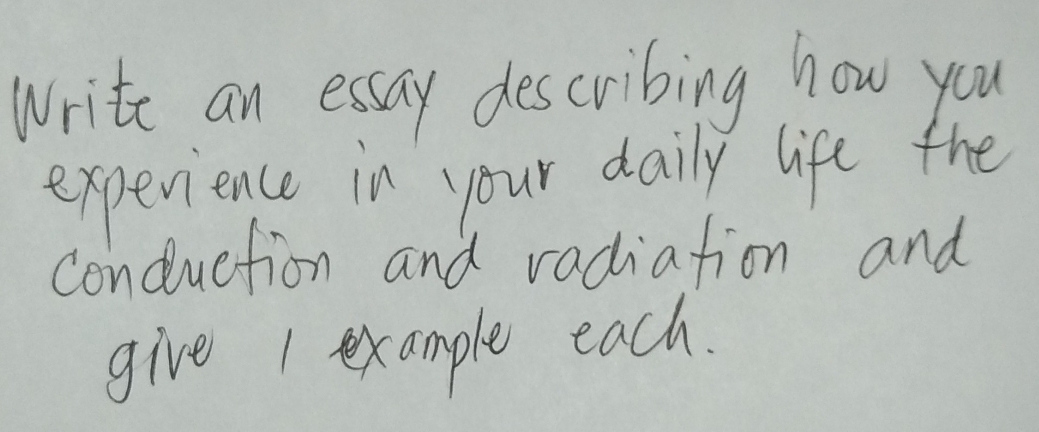 Write an essay describing how you
experience in your daily life the
conduction and radiation and
give 1 example each.